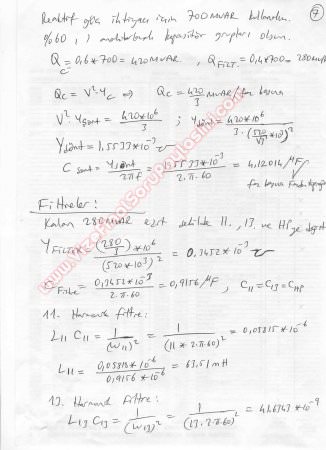 Reaktif güç ihtiyacı için 700MVAR kullanılır. 7
%60, ı anahtarlamalı kapasitör grupları olsun.
Q_C = 0,6*700 = 420 MVAR , Q_FİLT. = 0,4*700 = 280 MVAR
Q_C = V²·Y_C ⇒ Q_C = 420/3 MVAR/faz başına
V²·Y_şönt = 420*10⁶/3 ; Y_şönt = 420*10⁶/3·(520/√3 *10³)²
Y_şönt = 1,5533*10⁻³ ℧
C_şönt = Y_şönt/2πf = 1,5533*10⁻³/2·π·60 = 4,12014 μF
faz başına
Filtreler :
Kalan 280MVAR eşit şekilde 11. , 13. ve HP'ye
Y_FİLTRE = (280/3)*10⁶/(520*10³)² = 0,3452*10⁻³ ℧
C_Filtre = 0,3452*10⁻³/2·π·60 = 0,9156 μF , C₁₁ = C₁₃ = C_HP
11. Harmonik filtre :
L₁₁ C₁₁ = 1/(ω₁₁)² = 1/(11*2·π·60)² = 0,05815*10⁻⁶
L₁₁ = 0,05815*10⁻⁶/0,9156*10⁻⁶ = 63,51 mH
13. Harmonik Filtre :
L₁₃ C₁₃ = 1/(ω₁₃)² = 1/(13·2·π·60)² = 41,6343*10⁻⁹